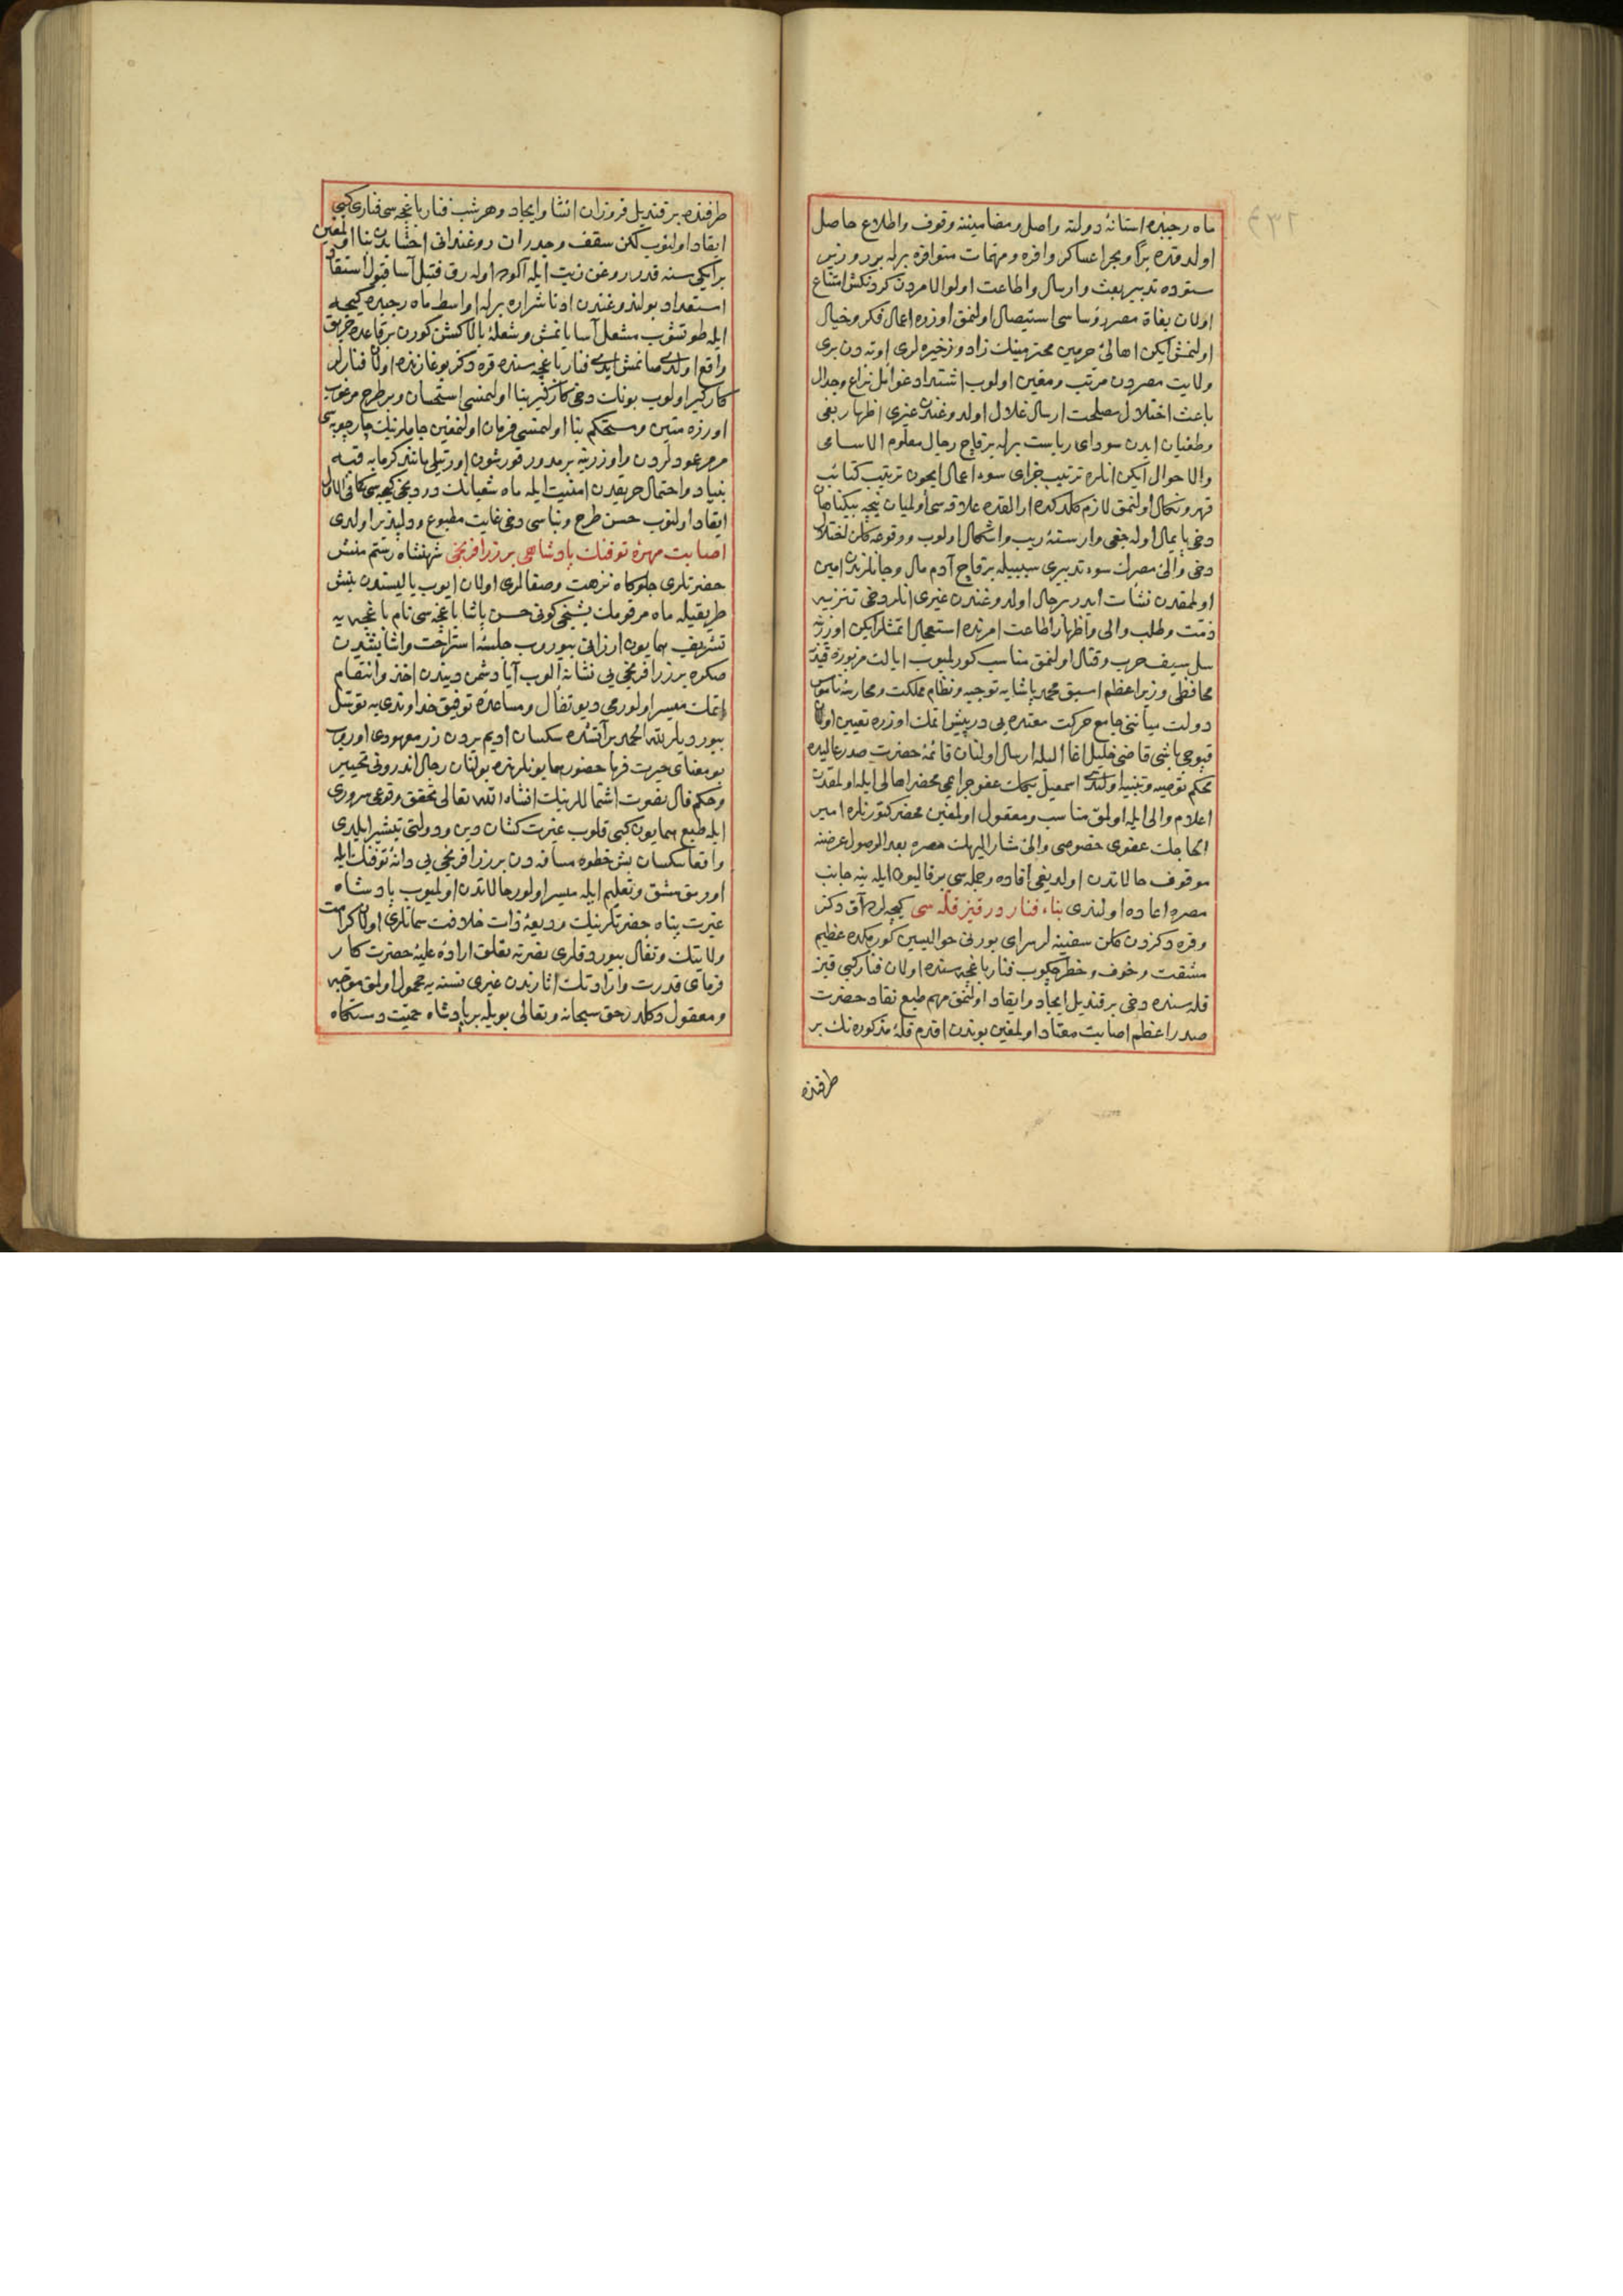 ماه رجبده استانهٔ دولته واصل ومضامیننه وقوف واطلاع حاصل
اولدقده برًّا وبحرا عساکر وافره ومهمات متوافره برله بر وزیر
ستوده تدبیر بعث وارسال واطاعت اولوالامردن کردنکش امتناع
اولان بغاة مصر رؤساسی استیصال اولنمق اوزره اعمال فکر وخیال
اولنمش ایکن اهالیٔ حرمین محترمینك زاد وذخیره لری اوته دن بری
ولایت مصردن مرتب ومعین اولوب اشتداد غوائل نزاع وجدال
باعث اختلال مصلحت ارسال غلال اولدوغندن غیری اظهار بغی
وطغیان ایدن سودای ریاست برله برقاچ رجال معلوم الاسامی
والاحوال ایکن انلره ترتیب جزای سوء اعمال ایچون ترتیب کتائب
قهر ونکال اولنمق لازم کلدکده ارالقده علاقه سی اولمیان نیجه بیکناهان
دخی پایمال اوله جغی وارستهٔ ریب واشکال اولوب ووقوعه کلن اختلال
دخی والیٔ مصرك سوء تدبیری سببیله برقاچ آدم مال وجانلرندن امین
اولمقدن نشأت ایدر برحال اولدوغندن غیری انلر دخی تنزیه
ذمت وطلب والی واظهار اطاعت امرنده استعجال اتمشلر ایکن اوزرلرینه
سل سیف حرب وقتال اولنمق مناسب کورلمیوب ایالت مزبوره قیدنه
محافظی وزیر اعظم اسبق محمد پاشایه توجیه ونظام مملکت ومحاربهٔ ناموس
دولت میاننی جامع حرکت معتدیی درپیش اتمك اوزره تعیین اولنان
قپوجی باشی قاضی خلیل اغا الیله ارسال اولنان قائمهٔ حضرت صدرعالیده
محکم توصیه وتنبیه اولندی اسمعیل بیکك عفو جرایمی محضر اهالی ایله اولمقدن
اعلام والی ایله اولمق مناسب ومعقول اولمغین محضر کتورنلره امیر
الحاجك عفوی خصوصی والیٔ مشار الیهك مصره بعد الوصول عرضنه
موقوف حالاتدن اولدیغی افاده وجمله سی برقالیون ایله ینه جانب
مصره اعاده اولندی بناء فنار در قیز قله سی کیجه لرده آق دکز
وقره دکزدن کلن سفینه لر سرای بورنی حوالیسین کورمکده عظیم
مشقت وخوف وخطر چکوب فنار باغچه سنده اولان فنار کبی قیز
قله سنده دخی برقندیل ایجاد وایقاد اولنمق مهم طبع نقاد حضرت
صدر اعظم اصابت معتاد اولمغین بوندن اقدم قلهٔ مذکوره نك بر
طرفنده
طرفنده برقندیل فروزان انشا وایجاد وهر شب فنار باغچه سی فناری کبی
ایقاد اولنوب لکن سقف وجدران روغندانی اخشابدن بنا اولنمغین
بر ایکی سنه قدر روغن زیت ایله آلوده اوله رق فتیل آسا قبول اشتعاله
استعداد بولدوغندن ادنا شراره برله اواسط ماه رجبده کیجه
ایله طوتشوب مشعل آسا یانمش وشعلهٔ بالاکشن کورن برقاعده حریق
واقع اولدی صانمش ایدی فنار باغچه سنده قره دکز بوغازنده اولان فنارلر
کارکیر اولوب بونك دخی کارکیر بنا اولنمسی استحسان وبرطرح مرغوب
اوزره متین ومستحکم بنا اولنمسی فرمان اولنمغین جاملرنیك چارچوبه سی
مرمر عمودلردن واوزرینه برمدور قورشون اورتیلی مانند کرمابه قبه
بنیاد واحتمال حریقدن امنیت ایله ماه شعبانك دردنجی کیجه سی کافی الاول
ایقاد اولنوب حسن طرح وبناسی دخی غایت مطبوع ودلپذیر اولدی
اصابت مهرهٔ توفنك پادشاهی بر زر افرنجی شهنشاه رستم منش
حضرتلری جلوکاه نزهت وصفالری اولان ایوب یالیسندن بنش
طریقیله ماه مرقومك بشنجی کونی حسن پاشا باغچه سی نام باغچه یه
تشریف همایون ارزانی بیوروب جلسهٔ استراحت واسایشدن
صکره بر زر افرنجی یی نشانه الوب آیا دشمن دیندن اخذ وانتقام
اتمك میسر اولورمی دیو تفأل ومساعدهٔ توفیق خداوندی یه توسل
بیوردیلر بلله الحمد برآتشده سکسان ادیم یردن زر معهودی اوروب
بو معنای حیرت فرما حضور همایونلرنده بولنان رجال اندرونی تحییر
وحکم فال نصرت اشتماللرنیك انشاء الله تعالی تحقق وقوعی سروری
ایله طبع همایون کبی قلوب غیرت کشان دین ودولتی تبشیر ایلیدی
واقعا سکسان بش خطوه مسافه دن بر زر افرنجی یی دانهٔ توفنك ایله
اورمق مشق وتعلیم ایله میسر اولور حالاتدن اولمیوب پادشاه
غیرت پناه حضرتلرنیك ودیعهٔ ذات خلافت سماتلری اولان کرامت
ولایتك وتفأل بیوردقلری نصرته تعلق ارادهٔ علیهٔ حضرت کار
فرمای قدرت وارادتك اثارندن غیری نسنه یه محمول اولمق موجه
ومعقول دکلدر حق سبحانه وتعالی بویله بر پادشاه حمیت دستکاه